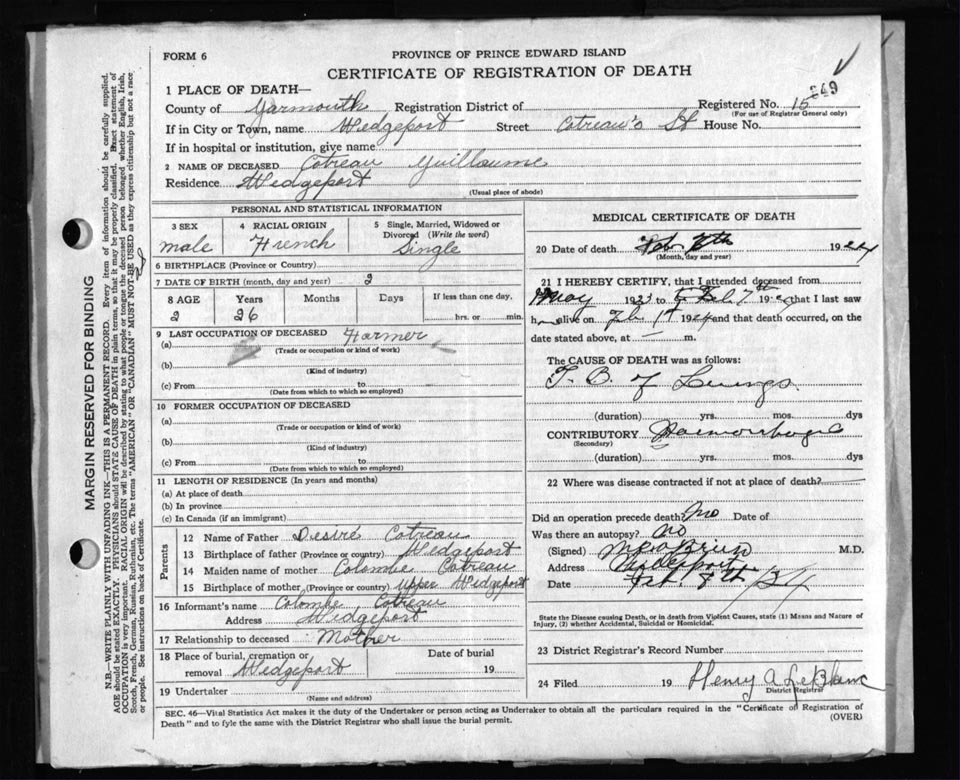 FORM 6
PROVINCE OF PRINCE EDWARD ISLAND
CERTIFICATE OF REGISTRATION OF DEATH
249
1 PLACE OF DEATH—
County of Yarmouth Registration District of Registered No. 15
(For use of Registrar General only)
If in City or Town, name Wedgeport Street Cotreau's St House No.
If in hospital or institution, give name
2 NAME OF DECEASED Cotreau Guillaume
Residence Wedgeport
(Usual place of abode)
PERSONAL AND STATISTICAL INFORMATION
3 SEX 4 RACIAL ORIGIN 5 Single, Married, Widowed or Divorced (Write the word)
male French Single
6 BIRTHPLACE (Province or Country)
7 DATE OF BIRTH (month, day and year) 2
8 AGE Years Months Days If less than one day,
2 26 hrs. or min.
9 LAST OCCUPATION OF DECEASED
(a) Farmer
(Trade or occupation or kind of work)
(b)
(Kind of industry)
(c) From to
(Date from which to which so employed)
10 FORMER OCCUPATION OF DECEASED
(a)
(Trade or occupation or kind of work)
(b)
(Kind of industry)
(c) From to
(Date from which to which so employed)
11 LENGTH OF RESIDENCE (In years and months)
(a) At place of death
(b) In province
(c) In Canada (if an immigrant)
Parents
12 Name of Father Desiré Cotreau
13 Birthplace of father (Province or country) Wedgeport
14 Maiden name of mother Colombe Cotreau
15 Birthplace of mother (Province or country) Upper Wedgeport
16 Informant's name Colombe Cotreau
Address Wedgeport
17 Relationship to deceased Mother
18 Place of burial, cremation or removal Wedgeport Date of burial 19
19 Undertaker
(Name and address)
MEDICAL CERTIFICATE OF DEATH
20 Date of death Feb 7th 1924
(Month, day and year)
21 I HEREBY CERTIFY, that I attended deceased from
May 1923 to Feb 7th 1924 that I last saw
h alive on Feb 1st 1924 and that death occurred, on the
date stated above, at m.
The CAUSE OF DEATH was as follows:
T. B. of Lungs
(duration) yrs. mos. dys
CONTRIBUTORY Haemorrhage
(Secondary)
(duration) yrs. mos. dys
22 Where was disease contracted if not at place of death?
Did an operation precede death? no Date of
Was there an autopsy? no
(Signed) M.D.
Address Wedgeport
Date Feb 8th/24
State the Disease causing Death, or in death from Violent Causes, state (1) Means and Nature of
Injury, (2) whether Accidental, Suicidal or Homicidal.
23 District Registrar's Record Number
24 Filed 19 Henry A LeBlanc
District Registrar
SEC. 46—Vital Statistics Act makes it the duty of the Undertaker or person acting as Undertaker to obtain all the particulars required in the "Certificate of Registration of
Death" and to fyle the same with the District Registrar who shall issue the burial permit.
(OVER)
MARGIN RESERVED FOR BINDING
N.B.—WRITE PLAINLY WITH UNFADING INK—THIS IS A PERMANENT RECORD. Every item of information should be carefully supplied.
AGE should be stated EXACTLY. PHYSICIANS should STATE CAUSE OF DEATH in plain terms, so that it may be properly classified. Exact statement of
OCCUPATION is very important. RACIAL ORIGIN will be described by stating to what people or tongue the deceased person belonged whether English, Irish,
Scotch, French, German, Russian, Ruthenian, etc. The terms "AMERICAN" OR "CANADIAN" MUST NOT BE USED as they express citizenship but not a race
or people. See instructions on back of Certificate.